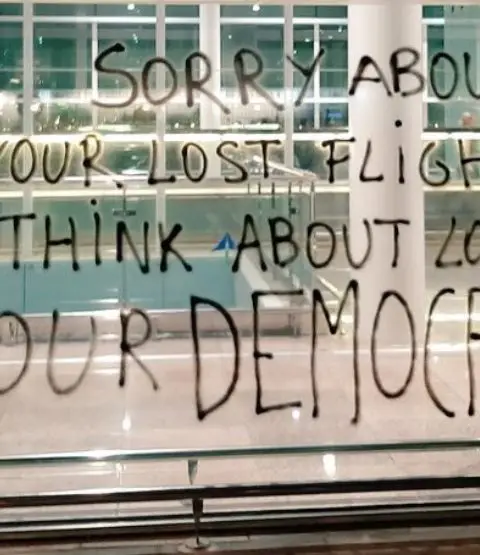 SORRY ABOU
YOUR LOST FLIGH
THINK ABOUT LO
OUR DEMOC